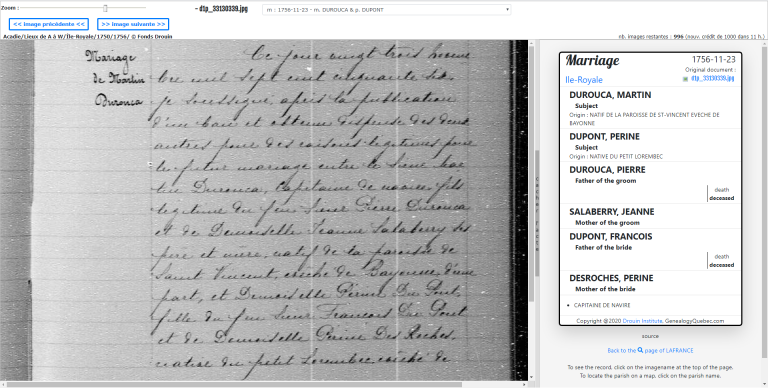 Zoom :
d1p_33130339.jpg
m : 1756-11-23 - m. DUROUCA & p. DUPONT
<< image précédente <<
>> image suivante >>
Acadie/Lieux de A à W/Île-Royale/1750/1756/ © Fonds Drouin
nb. images restantes : 996 (nouv. crédit de 1000 dans 11 h.)
Mariage
de Martin
Durouca
Ce jour vingt trois
bre mil sept cent cinquante six
je soussigné, après la publication
d'un banc et obtenu dispense des deux
autres pour des raisons legitimes pour
le futur mariage entre le Sieur Mar
tin Durouca, Capitaine de navire, fils
legitime du feu Sieur Pierre Durouca
et de Demoiselle Jeanne Salaberry ses
pere et mere, natif de la paroisse de
Saint Vincent, evêché de Bayonne, d'une
part, et Demoiselle Perine Du Pont,
fille du feu Sieur Francois Du Pont
et de Demoiselle Perine Des Roches,
native du petit Lorembec evêché de
Marriage
1756-11-23
Original document :
Ile-Royale
d1p_33130339.jpg
DUROUCA, MARTIN
Subject
Origin : NATIF DE LA PAROISSE DE ST-VINCENT EVECHE DE
BAYONNE
DUPONT, PERINE
Subject
Origin : NATIVE DU PETIT LOREMBEC
DUROUCA, PIERRE
Father of the groom
death
deceased
SALABERRY, JEANNE
Mother of the groom
DUPONT, FRANCOIS
Father of the bride
death
deceased
DESROCHES, PERINE
Mother of the bride
CAPITAINE DE NAVIRE
Copyright @2020 Drouin Institute. GenealogyQuebec.com
source
Back to the page of LAFRANCE
To see the record, click on the imagename at the top of the page.
To locate the parish on a map, click on the parish name.